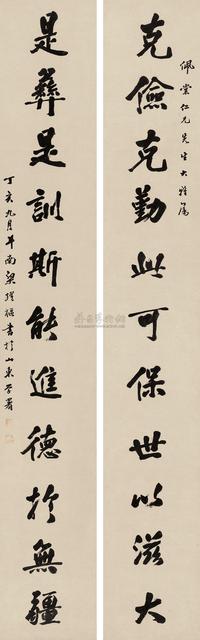 佩棠仁兄先生大雅屬
克儉克勤此可保世以滋大
是彝是訓斯能進德於無疆
丁亥九月年南梁耀樞書於山東學署